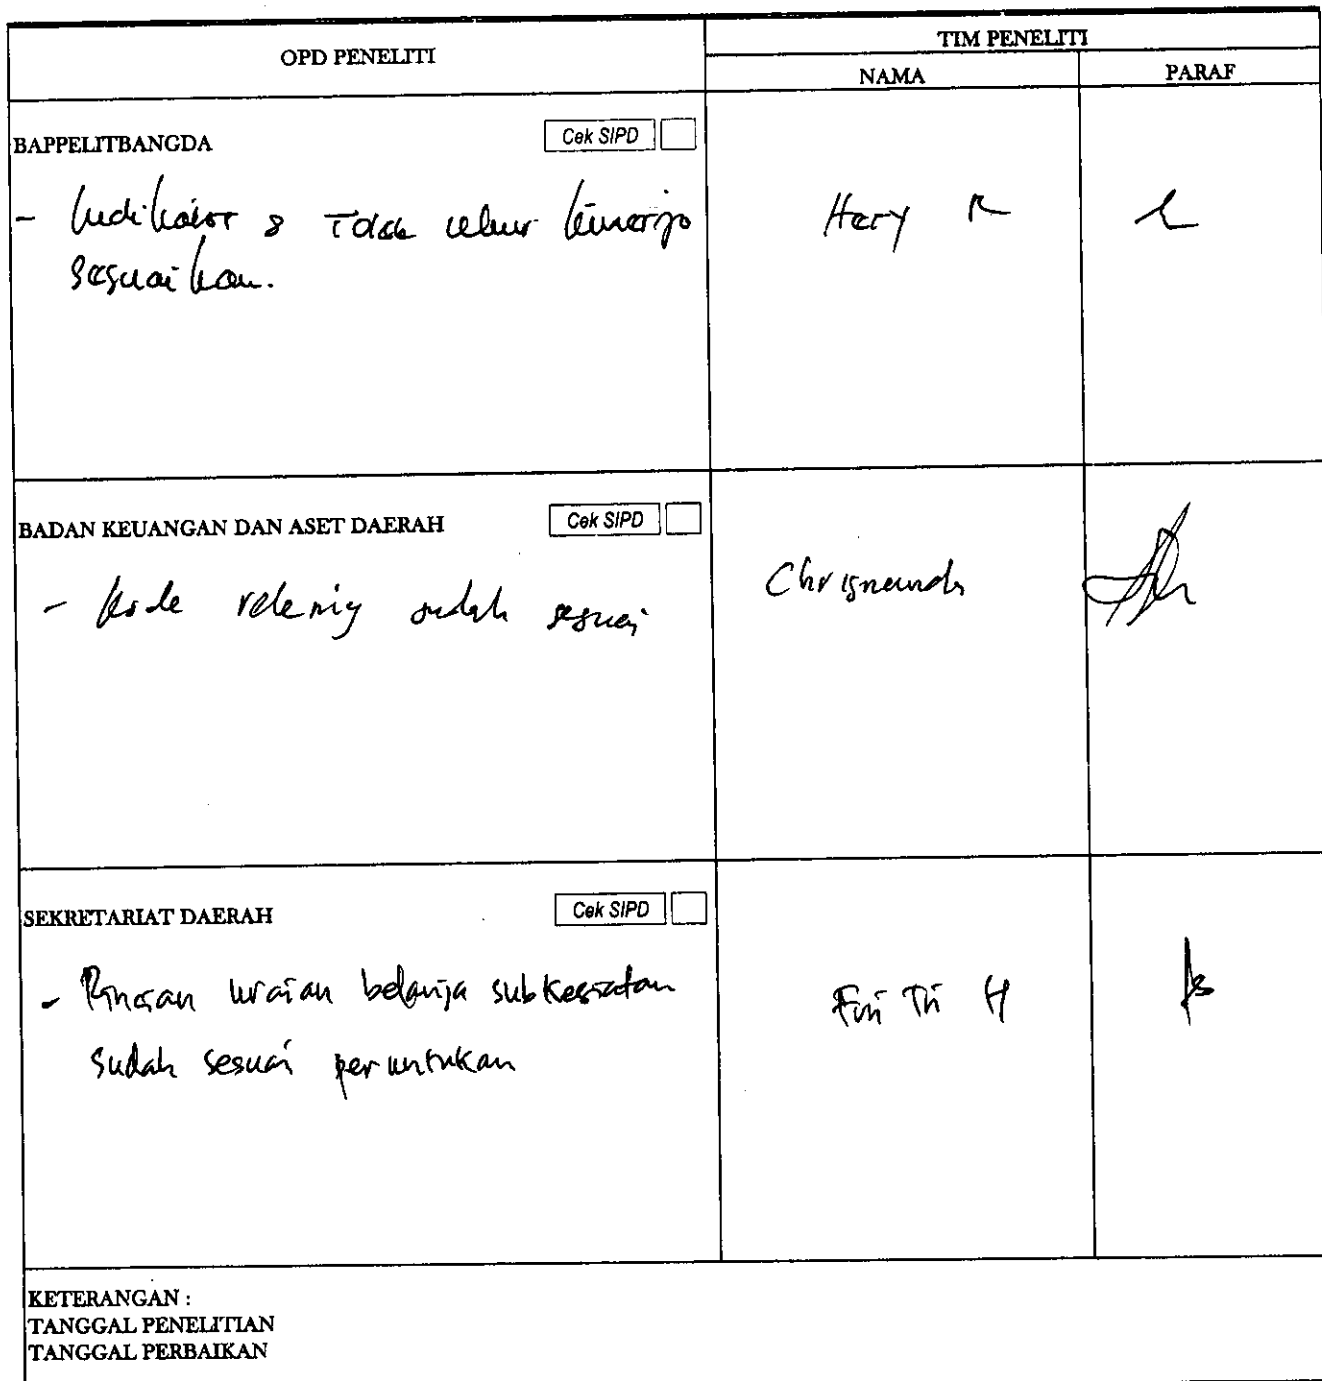 OPD PENELITI
TIM PENELITI
NAMA
PARAF
BAPPELITBANGDA
Cek SIPD
- Indikator & Tolak ukur kinerja
sesuaikan.
Hery R
BADAN KEUANGAN DAN ASET DAERAH
Cek SIPD
- kode rekening sudah sesuai
SEKRETARIAT DAERAH
Cek SIPD
- Rincian uraian belanja subkegiatan
sudah sesuai peruntukan
Tri H
KETERANGAN :
TANGGAL PENELITIAN
TANGGAL PERBAIKAN